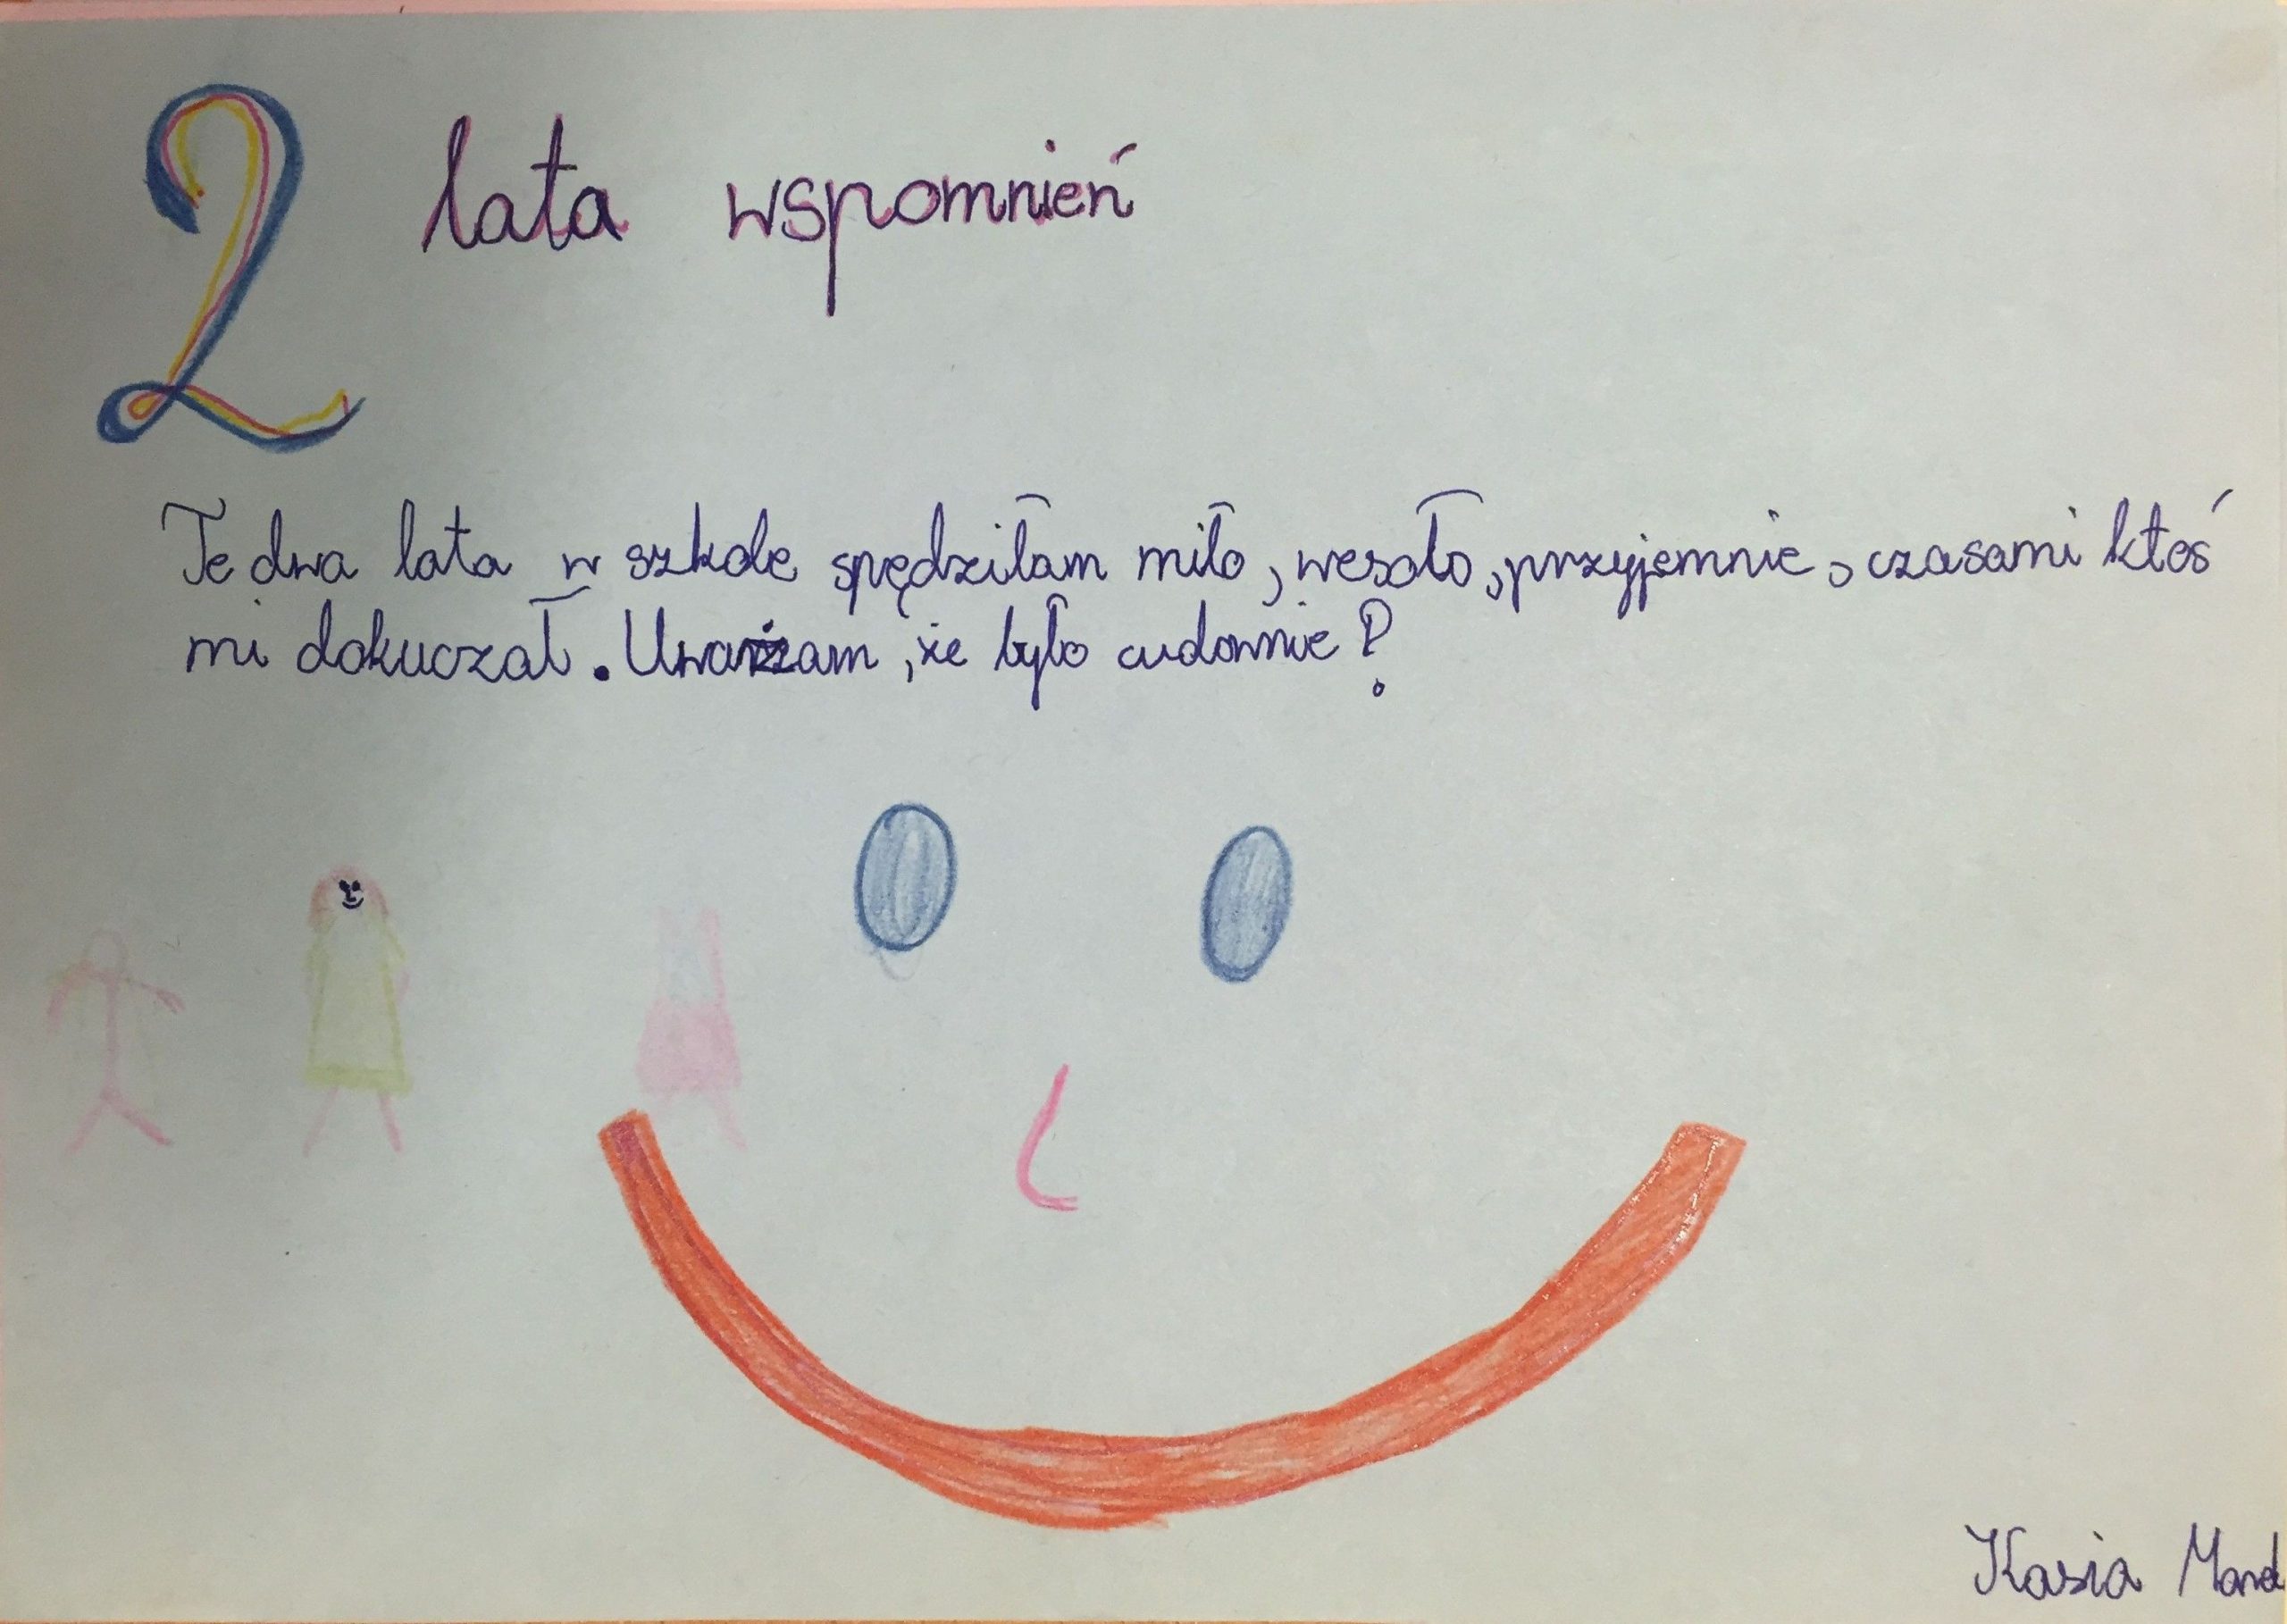 2 lata wspomnień
Te dwa lata w szkole spędziłam miło, wesoło, przyjemnie, czasami ktoś
mi dokuczał. Uważam, że było cudownie?
Kasia